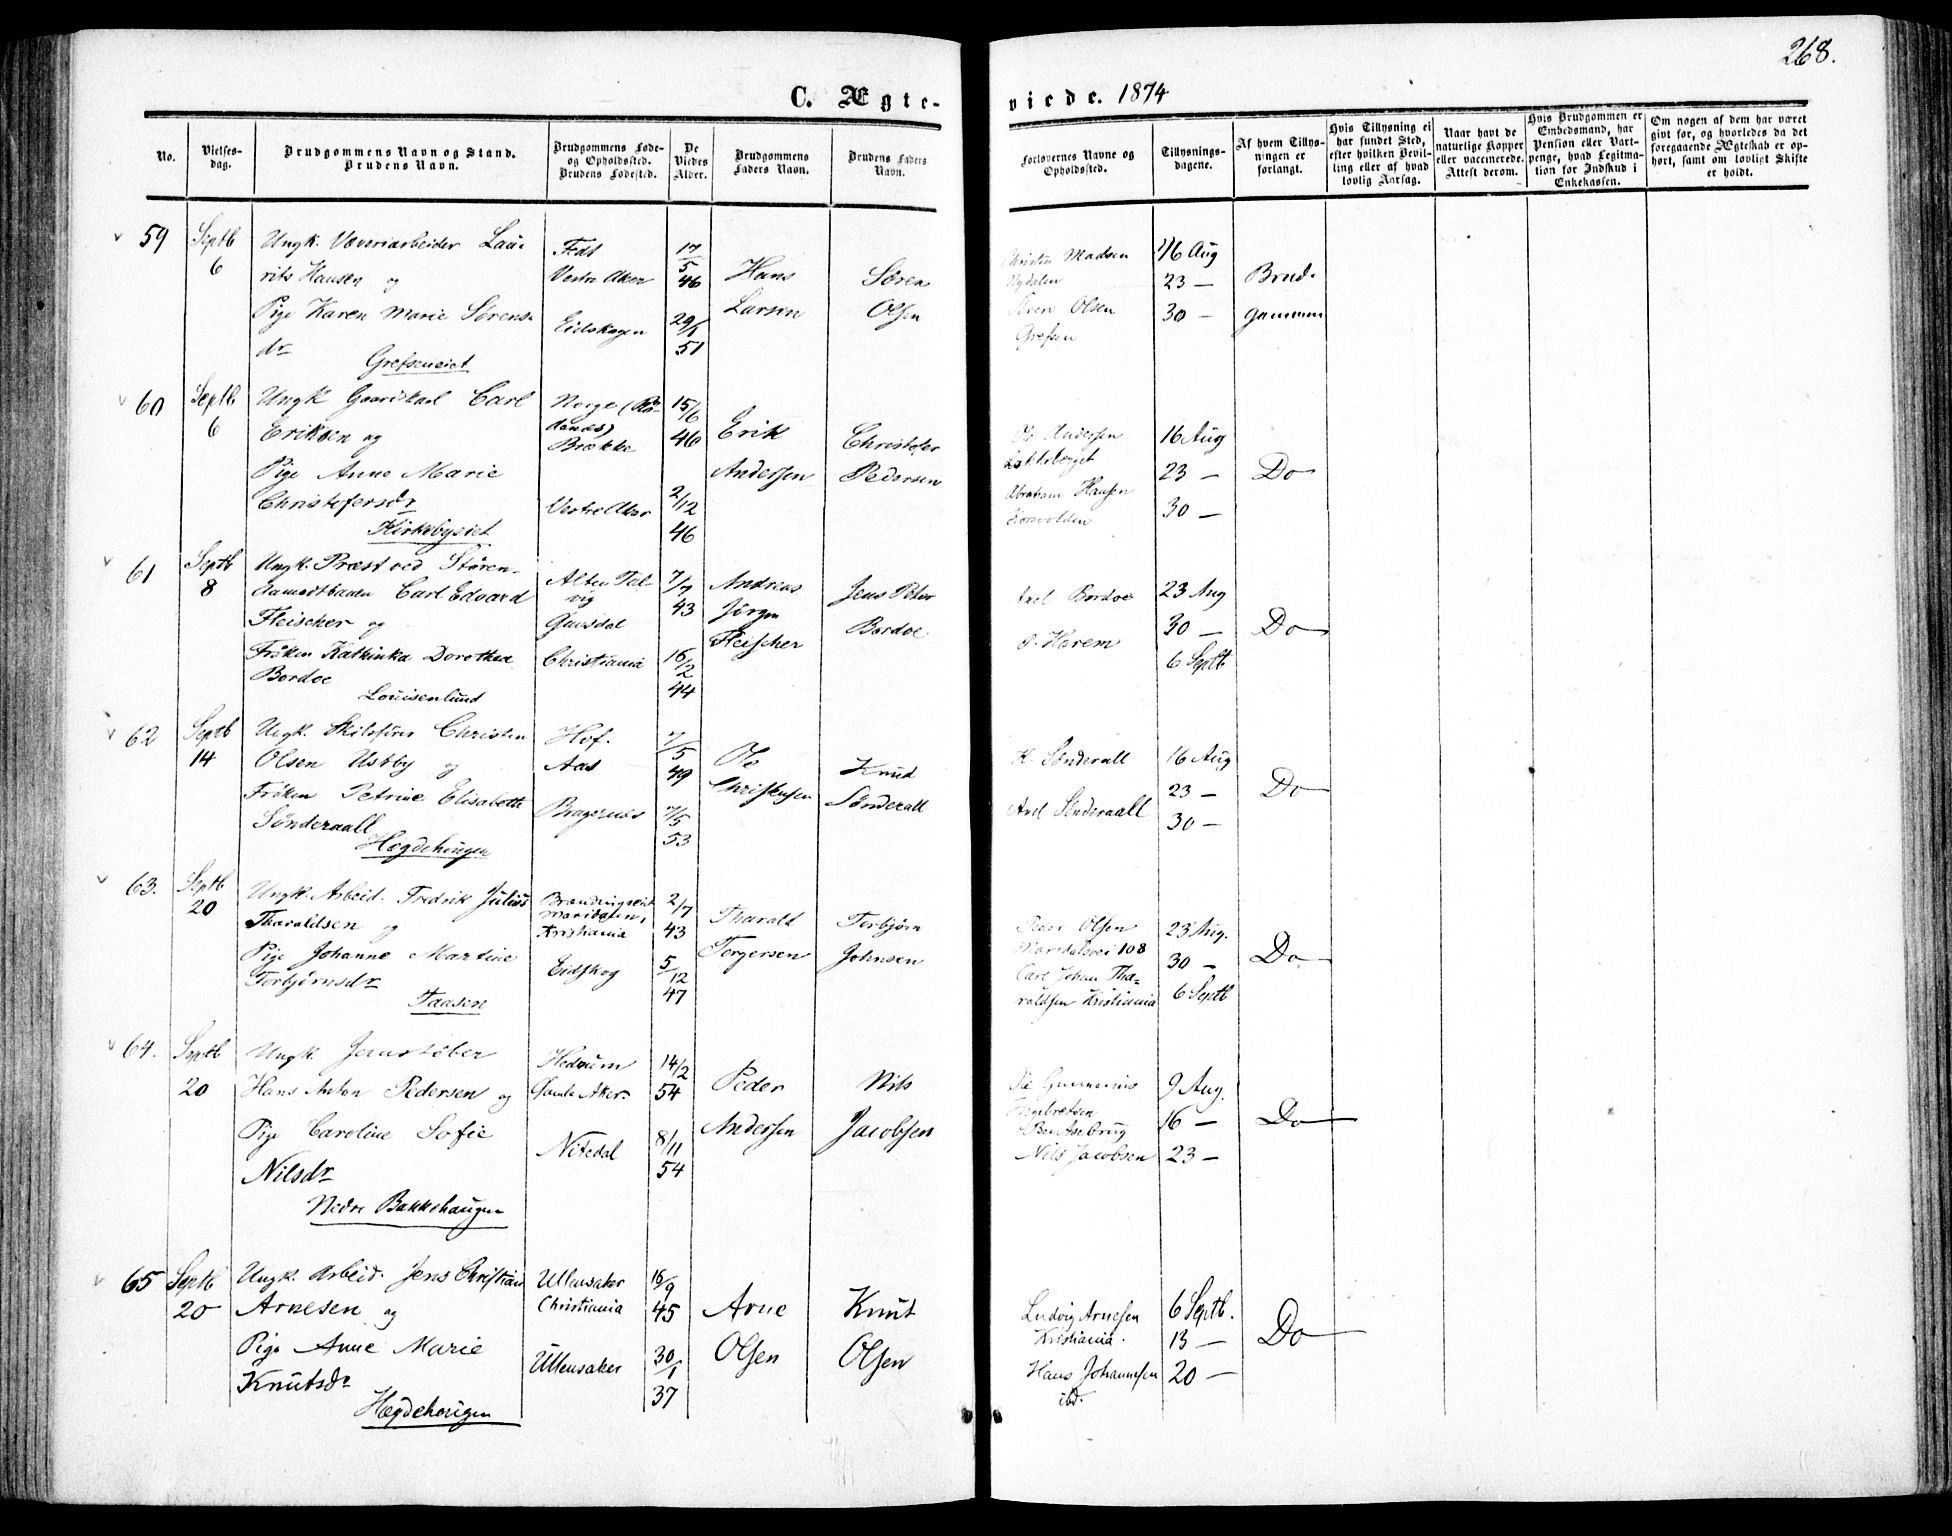 268.
C. Ægte-
viede. 1874
No.
Vielses-
dag.
Brudgommens Navn og Stand.
Brudens Navn.
Brudgommens Føde-
og Opholdssted.
Brudens Fødested.
De
Viedes
Alder.
Brudgommens
Faders Navn.
Brudens Faders
Navn.
Forlovernes Navne og
Opholdssted.
Tillysnings-
dagene.
Af hvem Tillys-
ningen er
forlangt.
Hvis Tillysning ei
har fundet Sted,
efter hvilken Bevil-
ling eller af hvad
lovlig Aarsag.
Naar havt de
naturlige Kopper
eller vaccinerede.
Attest derom.
Hvis Brudgommen er
Embedsmand, har
Pension eller Vart-
penge, hvad Legitima-
tion for Indskud i
Enkekassen.
Om nogen af dem har været
gift før, og hvorledes da det
foregaaende Ægteskab er op-
hørt, samt om lovligt Skifte
er holdt.
59
Septb
6
Ungk. Væveriarbeider Lau-
rits Hansen og
Pige Karen Marie Sørens-
dr
Grefseneiet
Fedt
Vestre Aker
Eidskogen
17/5
46
29/1
51
Hans
Larsen
Søren
Olsen
Christen Madsen
Nydalen
Søren Olsen
Grefsen
16 Aug
23 —
30 —
Brud-
gommen
60
Septb
6
Ungk Gaardskarl Carl
Eriksen og
Pige Anne Marie
Christofersdr
Kirkebyeiet
Brække
Vestre Aker
15/6
46
2/12
46
Erik
Andersen
Christofer
Pedersen
Ole Andersen
Løkkeberget
Abraham Hansen
Korsvolden
16 Aug
23 —
30 —
Do
61
Septb
8
Ungk. Præst ved Støren-
Aamodtbanen Carl Edvard
Fleischer og
Frøken Kathinka Dorothea
Bordoe
Louisenlund
Alten Tal-
vig
Gausdal
Christiania
7/7
43
16/2
44
Andreas
Jørgen
Fleischer
Jens Peter
Bordoe
Axel Bordoe
P. Harem
23 Aug
30 —
6 Septb
Do
62
Septb
14
Ungk. Skibsfører Christen
Olsen Ustby og
Frøken Petrine Elisabeth
Sønderaall
Hægdehougen
Hof.
Aas
Bragernes
7/5
49
7/5
53
Ole
Christensen
Knud
Sønderall
K. Sønderall
Axel Sønderaall
16 Aug
23 —
30 —
Do
63.
Septb
20
Ungk. Arbeid. Fredrik Julius
Tharaldsen og
Pige Johanne Martine
Torbjørnsdr
Taasen
Brændingseiet
Maridalen,
Kristiania
Eidskog
2/7
43
5/12
47
Tharald
Torgersen
Torbjørn
Johnsen
Peder Olsen
Maridalsvei 108
Carl Johan Tha-
raldsen Kristiania
23 Aug.
30 —
6 Septb
Do
64.
Septb
20
Ungk. Jernstøber
Hans Anton Pedersen og
Pige Caroline Sofie
Nilsdr
Nedre Bakkehaugen
Hedrum
Gamle Aker
Nitedal
14/2
54
8/11
54
Peder
Andersen
Nils
Jacobsen
Ole Gunnerius
Engebretsen
Bentsebrug
Nils Jacobsen
9 Aug.
16 —
23 —
Do
65
Septb
20
Ungk. Arbeid. Jens Christian
Arnesen og
Pige Anne Marie
Knutsdr
Hægdehougen
Ullensaker
Christiania
Ullensaker
16/9
45
30/1
37
Arne
Olsen
Knut
Olsen
Ludvig Arnesen
Kristiania.
Hans Johannesen
ibd.
6 Septb.
13 —
20 —
Do